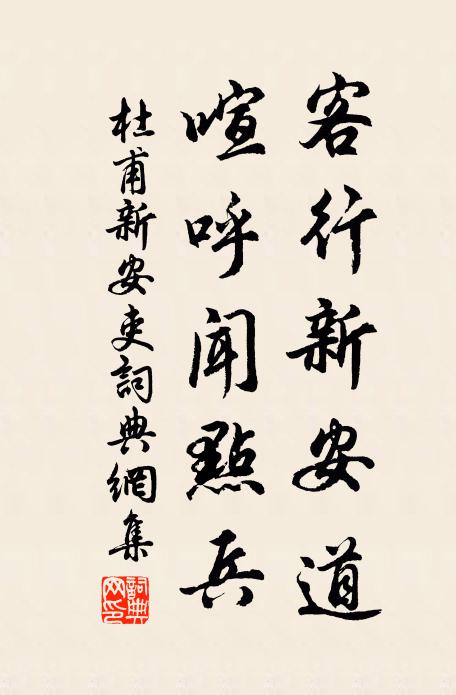 客行新安道
喧呼聞點兵
杜甫新安吏詞典網集
詞典網印